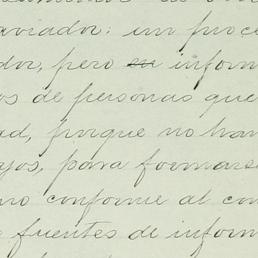 aviador: un proce
dor, pero su inform
os de personas que
ad, porque no han
jos, para formarse
no conforme al con
fuentes de inform